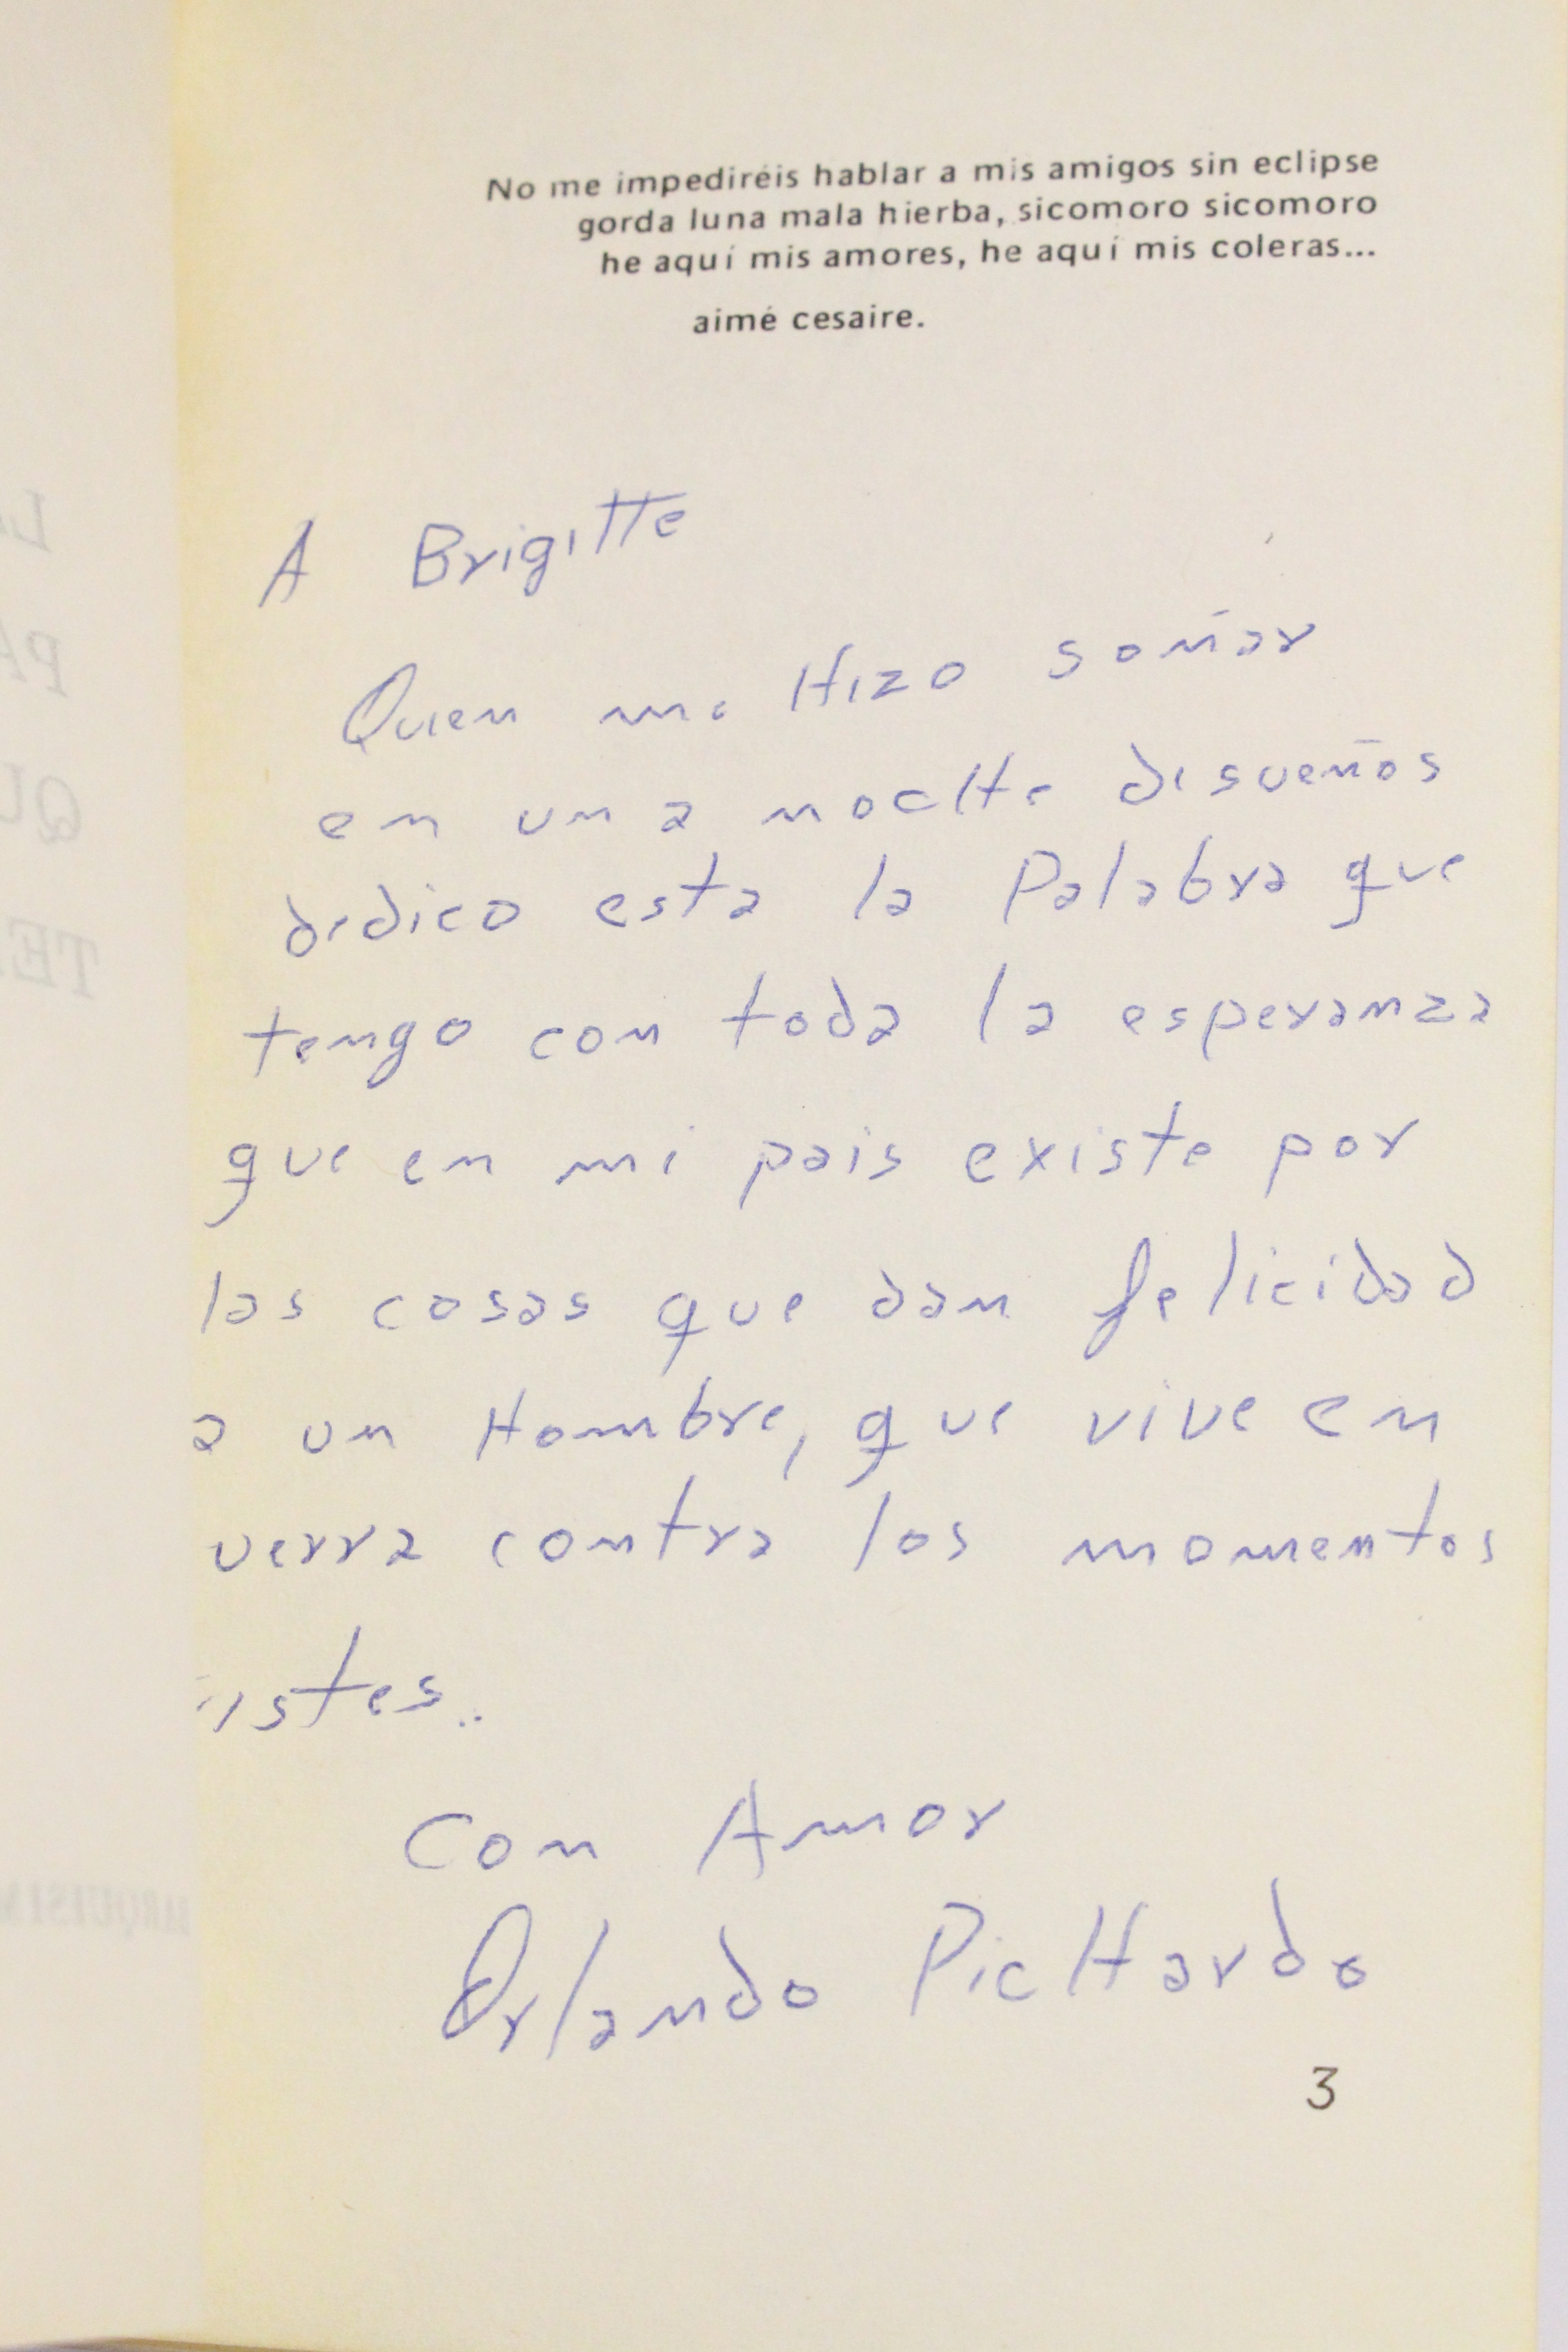 No me impediréis hablar a mis amigos sin eclipse
gorda luna mala hierba, sicomoro sicomoro
he aquí mis amores, he aquí mis coleras...
aimé cesaire.
A Brigitte
Quien me Hizo soñar
en una nocHe de sueños
dedico esta la Palabra que
tengo con toda la esperanza
que en mi pais existe por
las cosas que dan felicidad
a un Hombre, que vive en
uerra contra los momentos
istes..
Con Amor
Orlando PicHardo
3